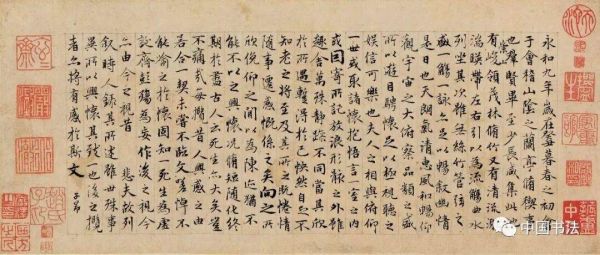 永和九年歲在癸丑暮春之初會
于會稽山陰之蘭亭脩稧事
也羣賢畢至少長咸集此地
有崇山峻領茂林脩竹又有清流激
湍暎帶左右引以為流觴曲水
列坐其次雖無絲竹管弦之
盛一觴一詠亦足以暢敘幽情
是日也天朗氣清惠風和暢仰
觀宇宙之大俯察品類之盛
所以遊目騁懷足以極視聽之
娛信可樂也夫人之相與俯仰
一世或取諸懷抱悟言一室之內
或因寄所託放浪形骸之外雖
趣舍萬殊靜躁不同當其欣
於所遇暫得於己怏然自足不
知老之將至及其所之既惓情
隨事遷感慨係之矣向之所
欣俛仰之閒以為陳迹猶不
能不以之興懷況脩短隨化終
期於盡古人云死生亦大矣豈
不痛哉每攬昔人興感之由
若合一契未嘗不臨文嗟悼不
能喻之於懷固知一死生為虛
誕齊彭殤為妄作後之視今
亦由今之視昔 悲夫故列
敘時人錄其所述雖世殊事
異所以興懷其致一也後之攬
者亦將有感於斯文
子昂
中国书法